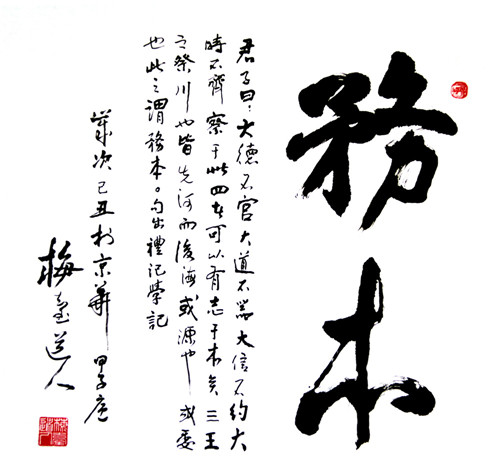 務本
君子曰：大德不官大道不器大信不約大
時不齊察于此四者可以有志于本矣三王
之祭川也皆先河而後海或源也或委
也此之謂務本。句出禮記學記
歲次己丑於京華 甲子庵
梅臺道人